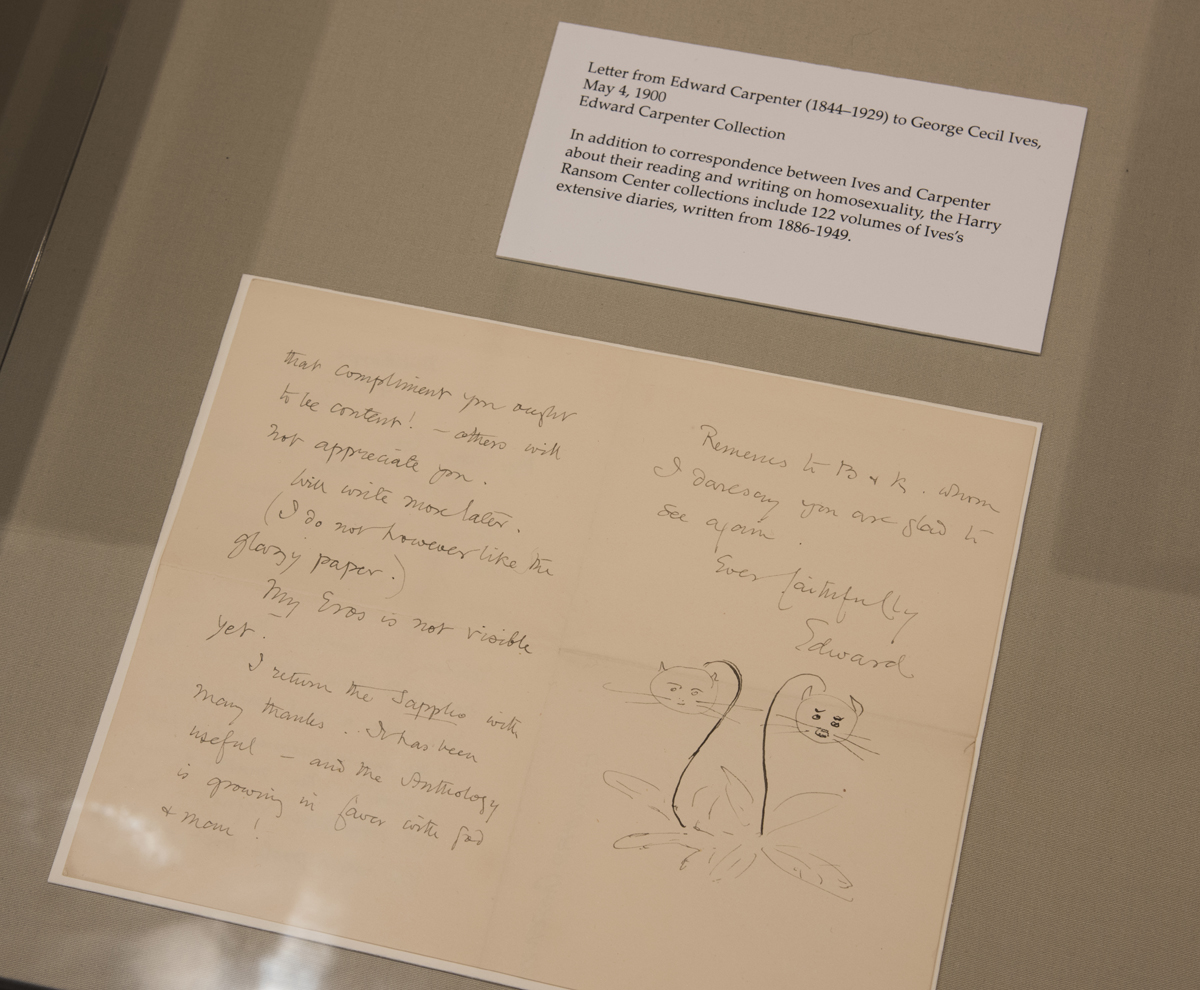 Letter from Edward Carpenter (1844–1929) to George Cecil Ives,
May 4, 1900
Edward Carpenter Collection
In addition to correspondence between Ives and Carpenter
about their reading and writing on homosexuality, the Harry
Ransom Center collections include 122 volumes of Ives's
extensive diaries, written from 1886-1949.
that compliment you ought
to be content! – others will
not appreciate you.
Will write more later.
(I do not however like the
glossy paper.)
My Eros is not visible
yet.
I return the Sappho with
many thanks. It has been
useful – and the Anthology
is growing in favor with god
& man!
to B & K. whom
I daresay you are glad to
see again.
Ever faithfully
Edward